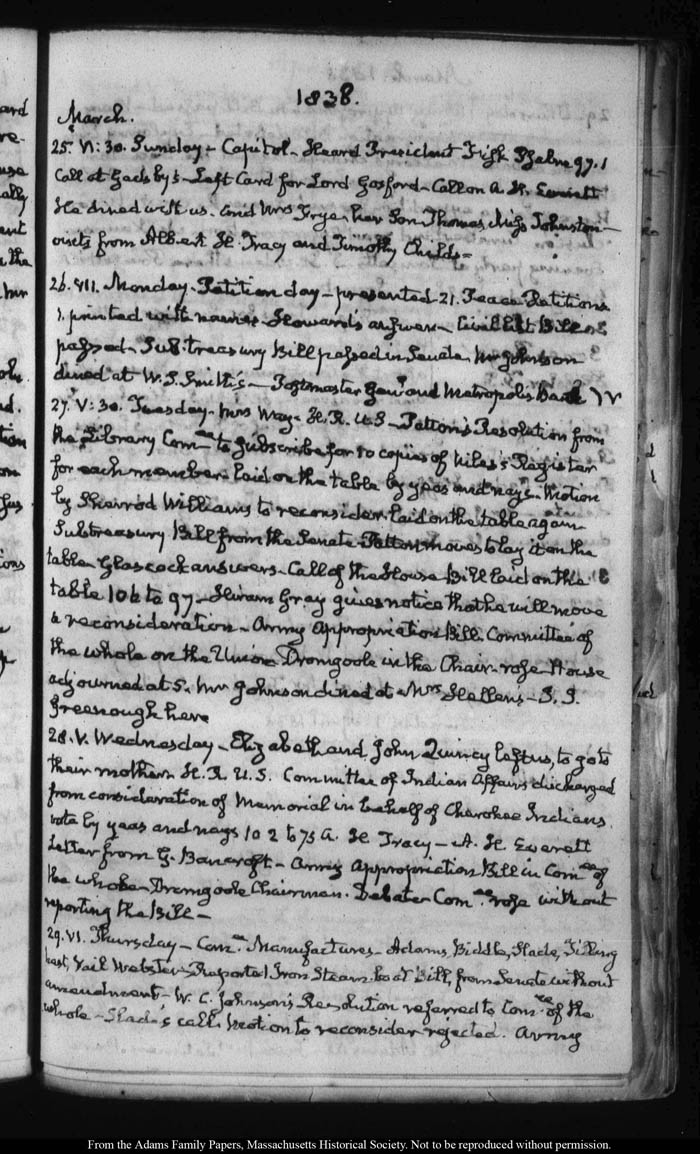 1838.
March.
25. VI:30. Sunday – Capitol – Heard President Fisk Psalm 97.1
Call at Gadsby's – Left Card for Lord Gosford – Call on A. H. Everett
He dined with us. and Mrs Frye, her Son Thomas, Miss Johnston –
visits from Albert H. Tracy and Timothy Childs –
26. VII. Monday. Petition day – presented 21. Peace Petitions
1. printed with names – Howard's answer – Civil list Bill
passed. Sub-treasury Bill passed in Senate. Mr Johnson
dined at W. S. Smith's – Postmaster Genl. and Metropolis Bank
27. V:30. Tuesday. Mrs Way. H. R. U.S – Patton's Resolution from
the Library Comee. to subscribe for 10 copies of Niles's Register
for each member laid on the table by yeas and nays – Motion
by Sherrod Williams to reconsider laid on the table again
Subtreasury Bill from the Senate Patton moves to lay it on the
table – Glascock answers – Call of the House – Bill laid on the
table 106 to 97 – Hiram Gray gives notice that he will move
a reconsideration – Army Appropriation Bill. Committee of
the whole on the Union Dromgoole in the Chair – rose – House
adjourned at 5. Mr Johnson dined at Mrs Hellen's –
Greenough here
28. V. Wednesday – Elizabeth and John Quincy left us, to go to
their mother. H. R. U.S. Committee of Indian Affairs discharged
from consideration of Memorial in behalf of Cherokee Indians
vote by yeas and nays 102 to 75 A. H Tracy – A. H Everett
Letter from G. Bancroft – Army Appropriation Bill in Comee. of
the whole – Dromgoole Chairman. Debate – Comee. rose without
reporting the Bill –
29. VI. Thursday – Comee. Manufactures – Adams, Biddle, Slade, Tilling
hast, Vail Webster – Reported Iron Steam boat Bill, from Senate without
amendment – W. C. Johnson's Resolution referred to Comee. of the
whole – Slade's call. Motion to reconsider rejected. Army
From the Adams Family Papers, Massachusetts Historical Society. Not to be reproduced without permission.